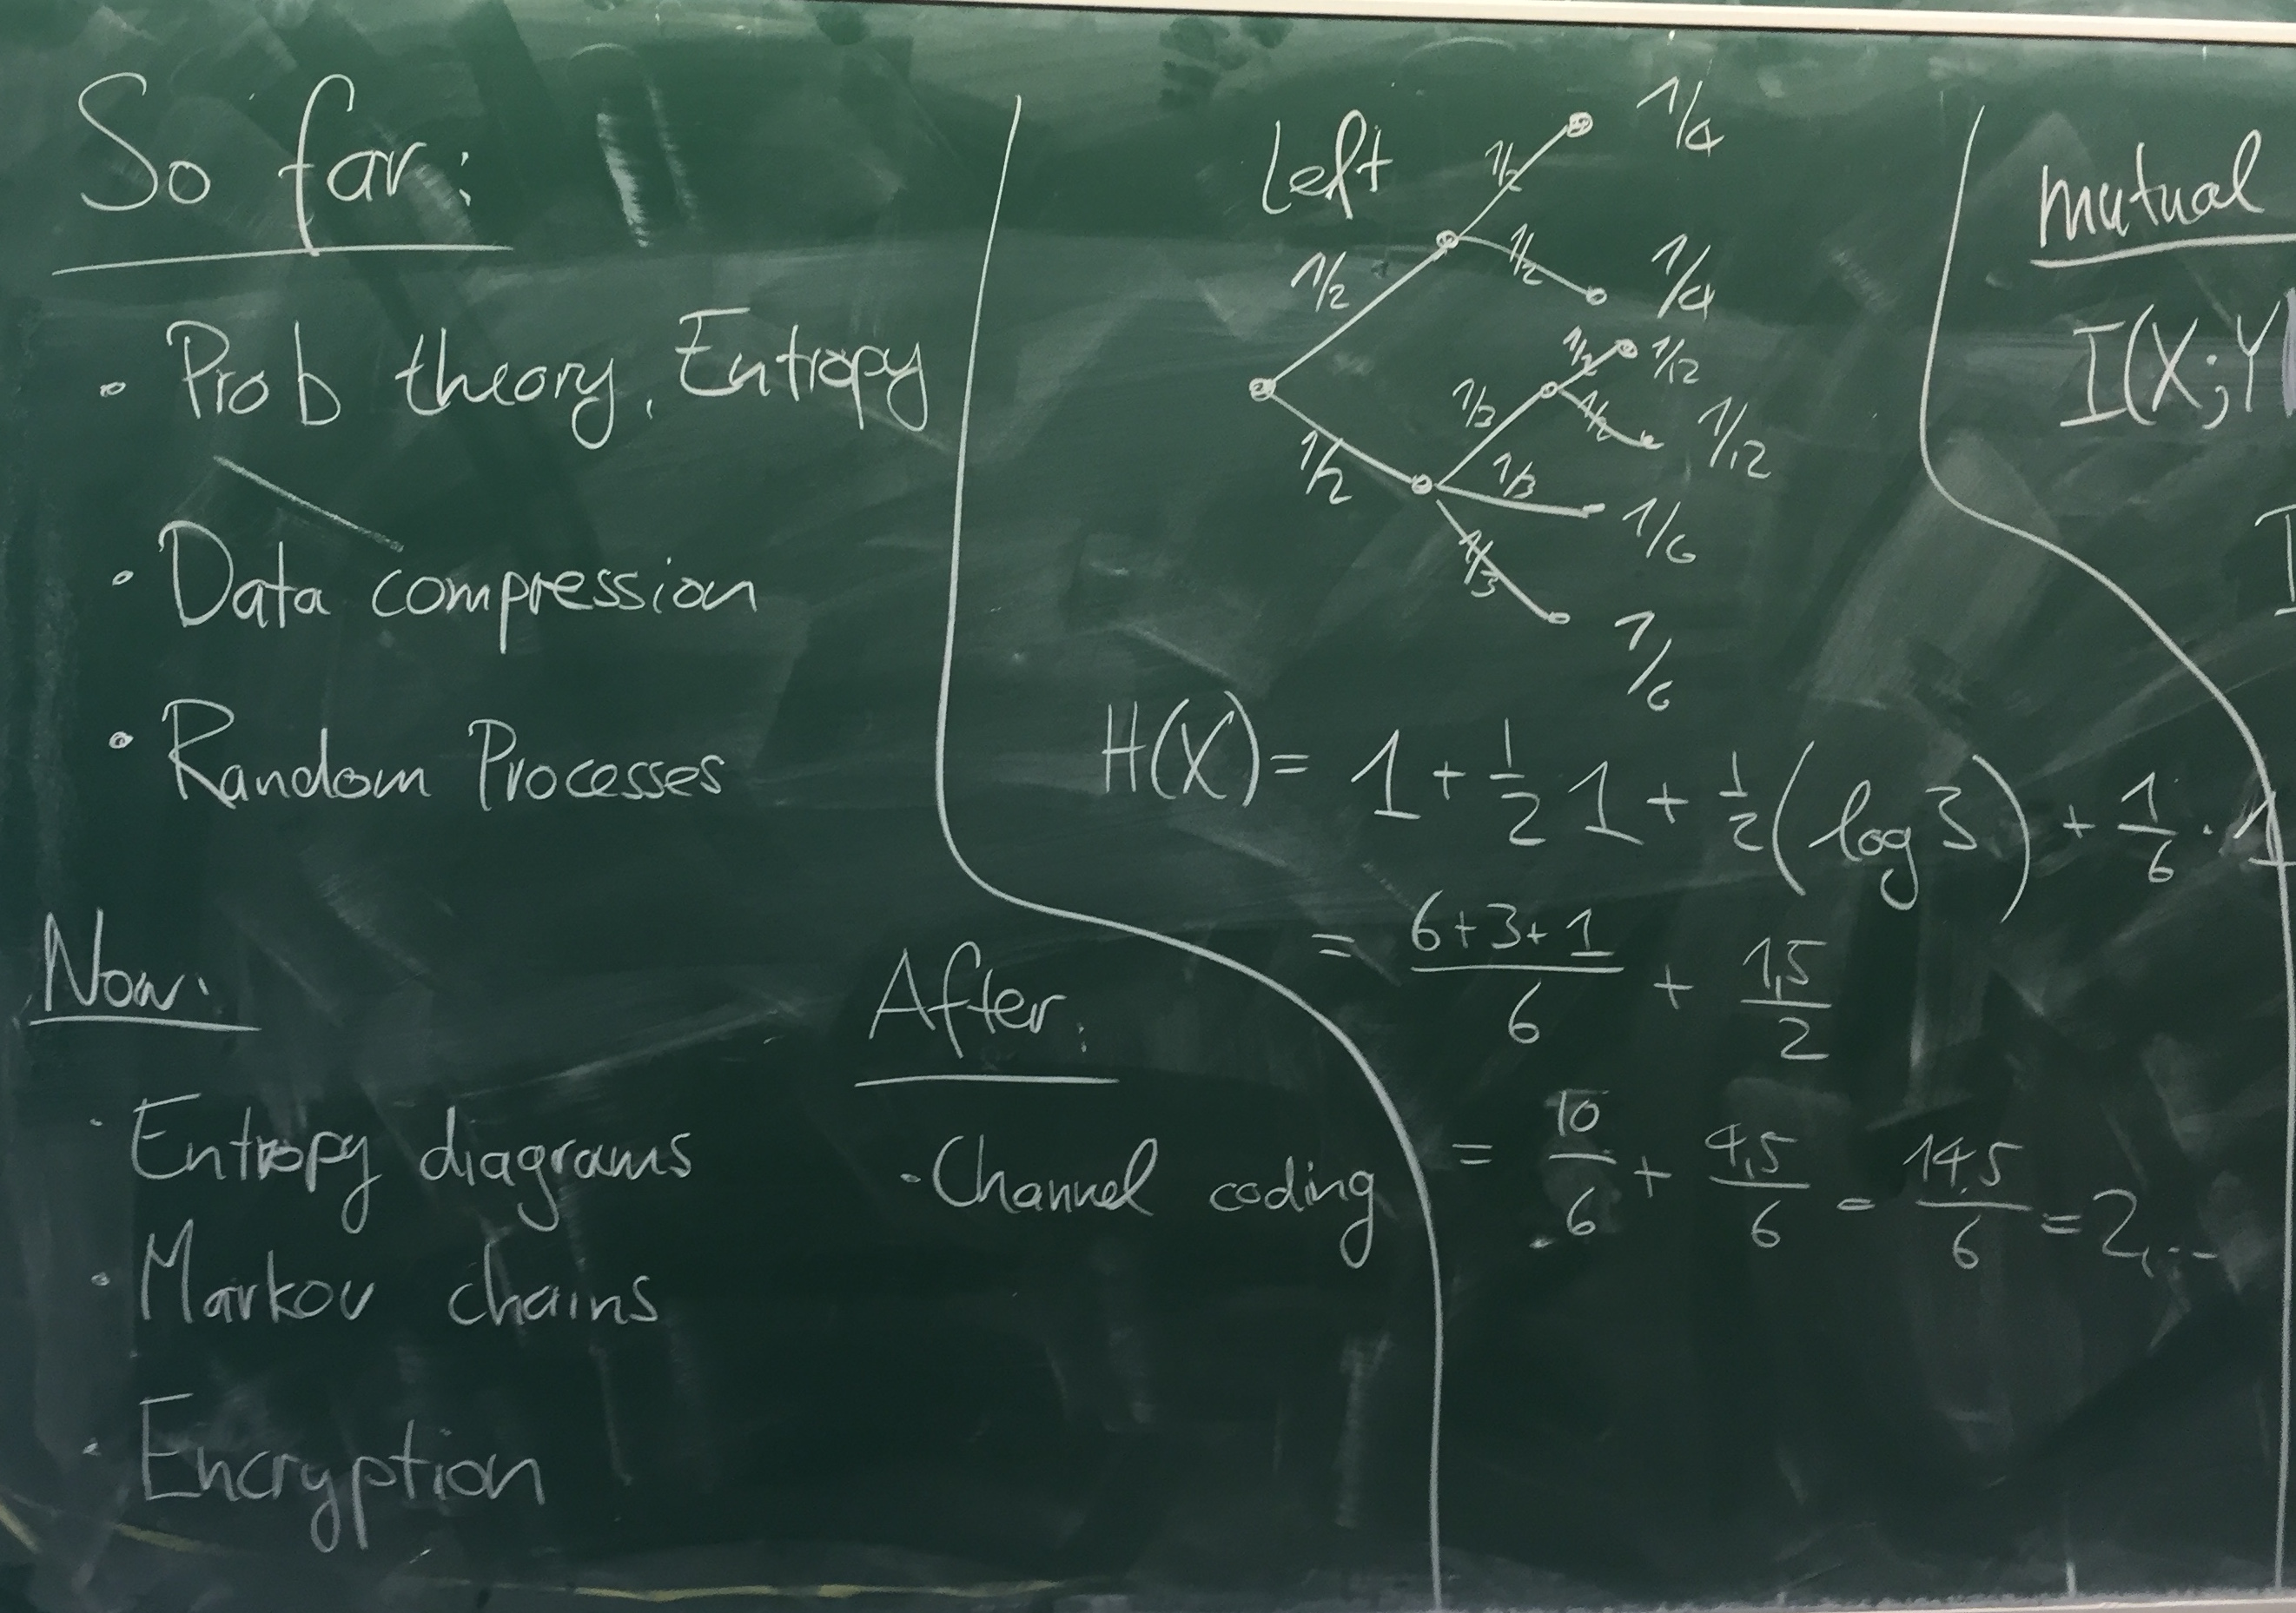 So far:
• Prob theory, Entropy
• Data compression
• Random Processes
Now:
• Entropy diagrams
• Markov chains
• Encryption
After:
• Channel coding
Left
1/2
1/2
1/2
1/4
1/2
1/4
1/3
1/2
1/12
1/2
1/12
1/3
1/6
1/3
1/6
H(X) = 1 + 1/2 1 + 1/2 (log 3) + 1/6 · 1
= (6+3+1)/6 + 1,5/2
= 10/6 + 4,5/6 = 14,5/6 = 2,...
mutual
I(X;Y
I